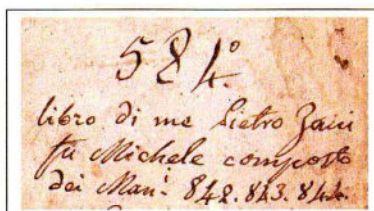 584°
libro di me Pietro Zani
fu Michele composto
dei Man.i 842. 843. 844.